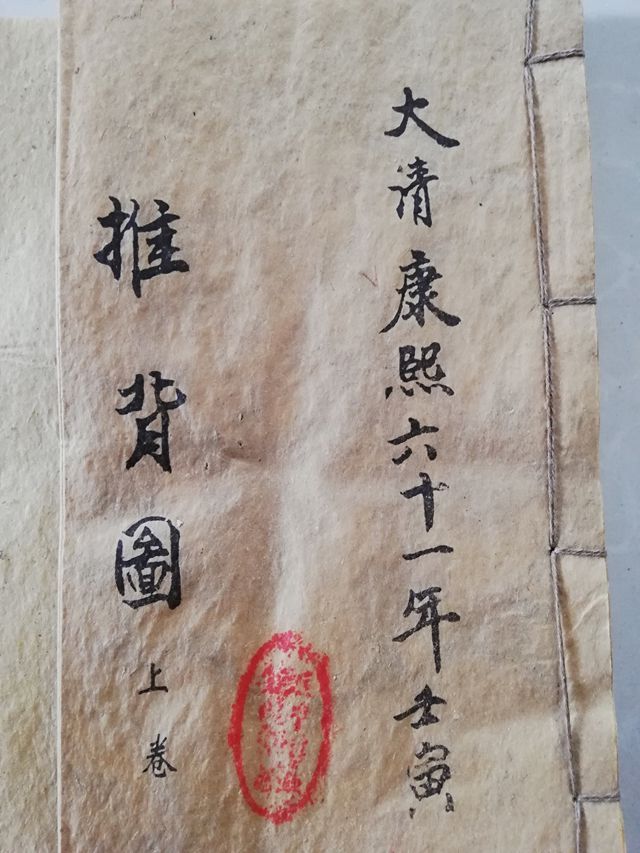 大清康熙六十一年壬寅
推背圖
上卷